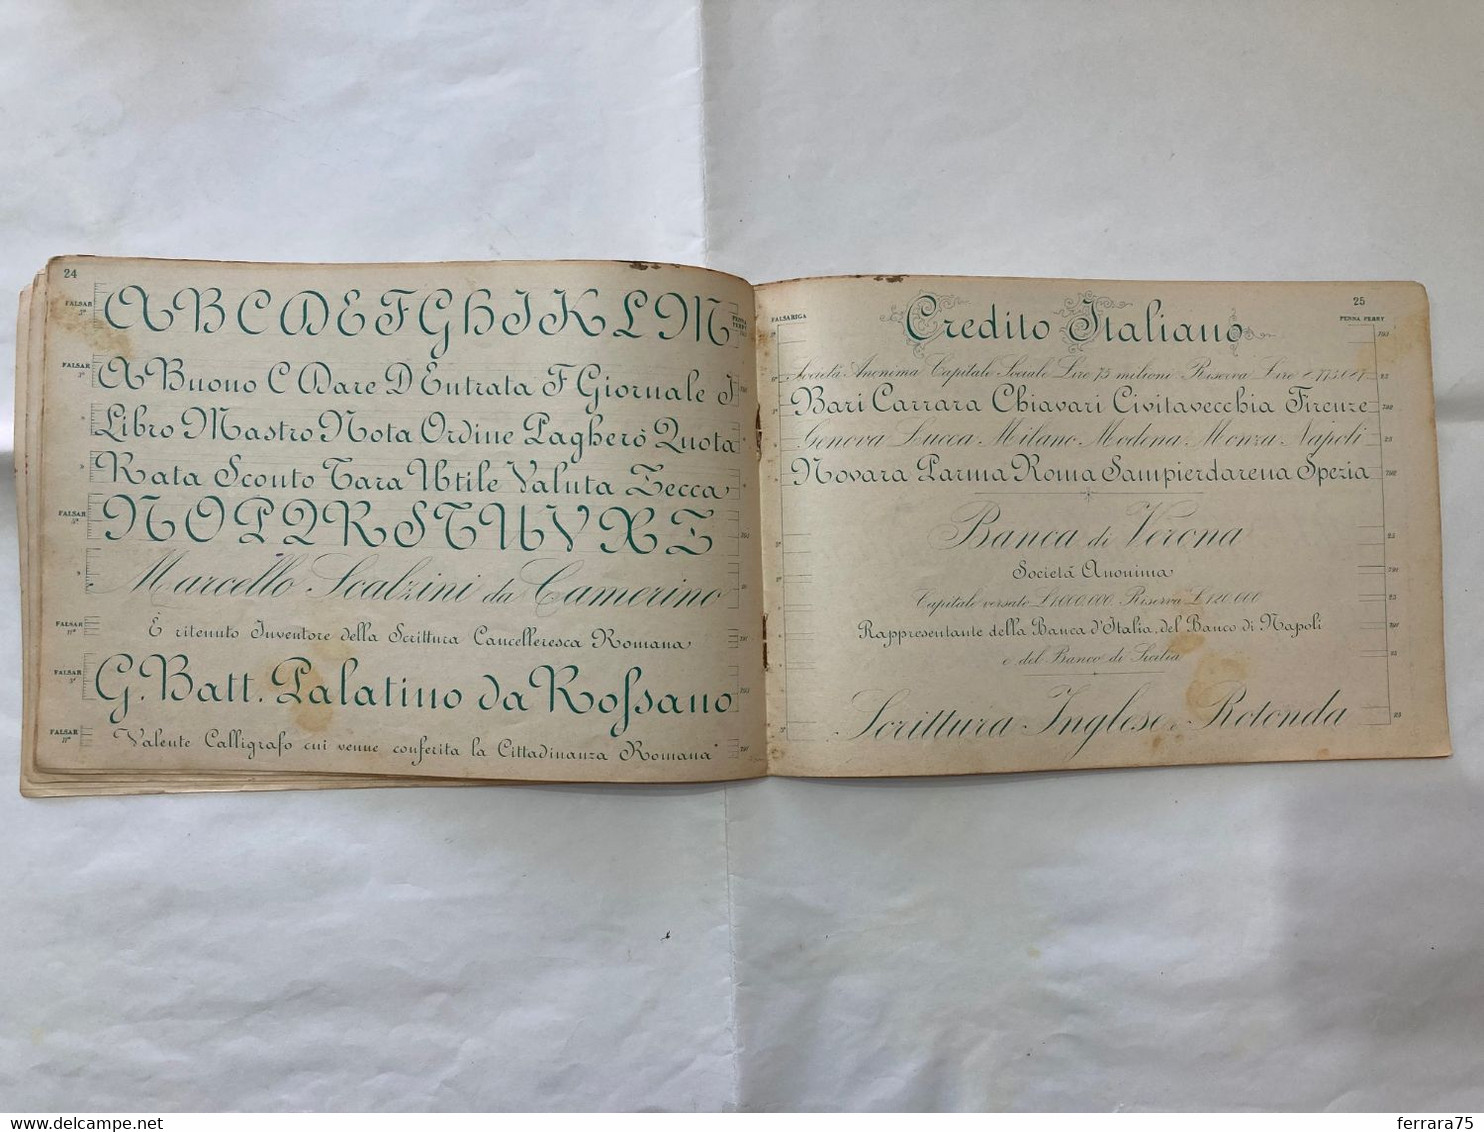 24
FALSAR
A B C D E F G H I K L M
PENNA PERRY
FALSAR
A Buono C Dare D Entrata F Giornale I
Libro Mastro Nota Ordine Pagherò Quota
Rata Sconto Tara Utile Valuta Zecca
FALSAR
N O P Q R S T U V X E Z
Marcello Scalzini da Camerino
FALSAR
È ritenuto Inventore della Scrittura Cancelleresca Romana
FALSAR
G. Batt. Palatino da Rossano
FALSAR
Valente Calligrafo cui venne conferita la Cittadinanza Romana
25
FALSARIGA
Credito Italiano
PENNA PERRY
Società Anonima Capitale Sociale Lire 75 milioni Riserva Lire
Bari Carrara Chiavari Civitavecchia Firenze
Genova Lucca Milano Modena Monza Napoli
Novara Parma Roma Sampierdarena Spezia
Banca di Verona
Società Anonima
Capitale versato L. 1.000.000 Riserva L. 120.000
Rappresentante della Banca d'Italia, del Banco di Napoli
e del Banco di Sicilia
Scrittura Inglese e Rotonda
ferrara75